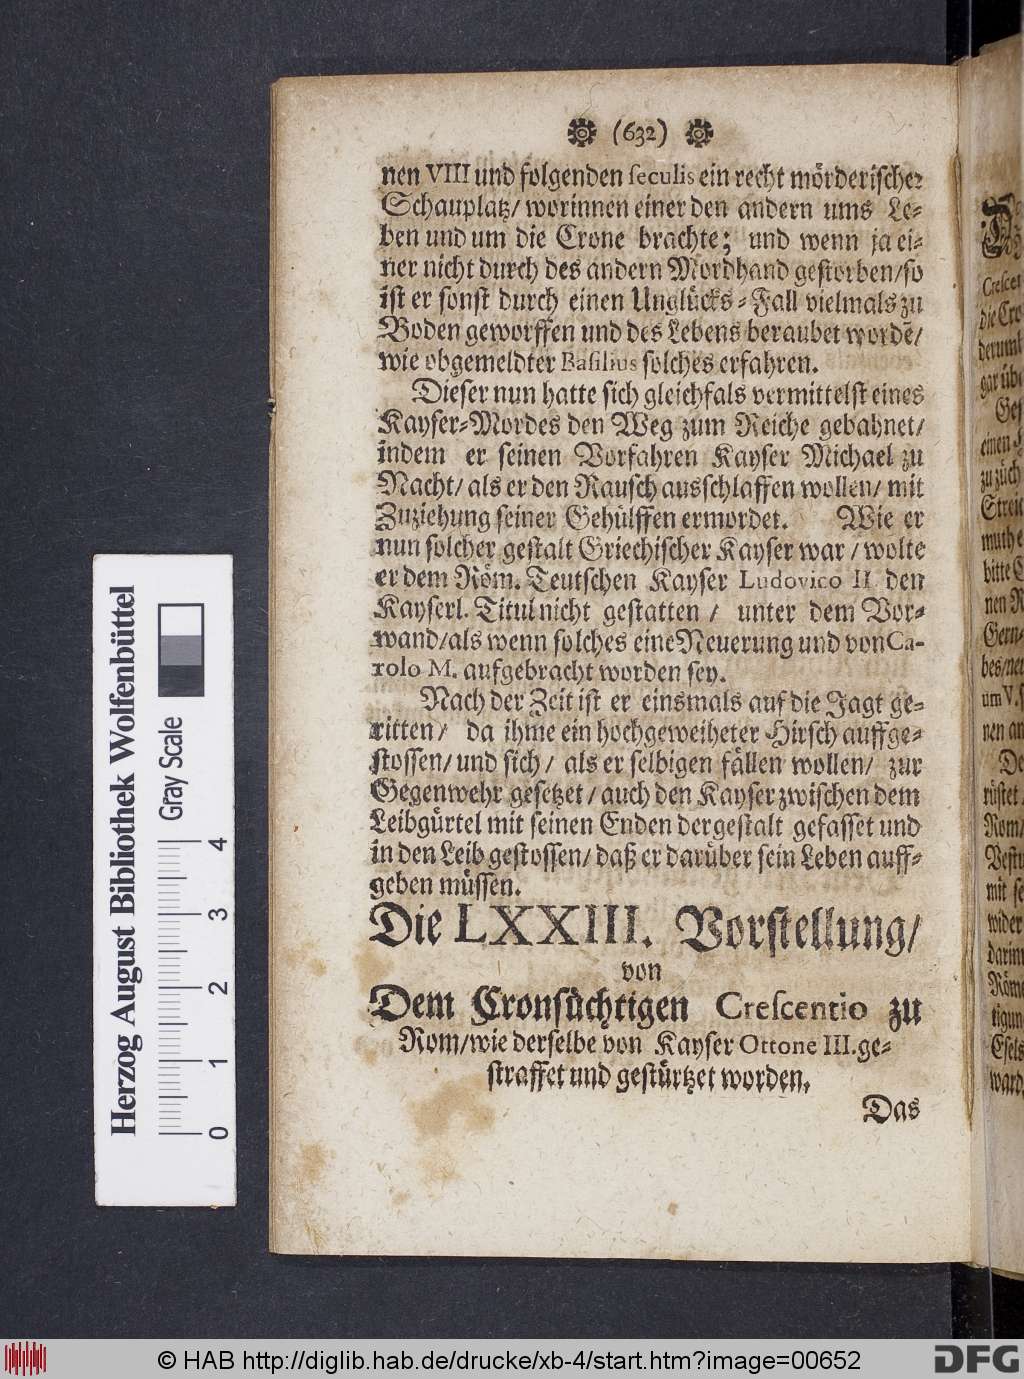 (632)
nen VIII und folgenden seculis ein recht mörderischer
Schauplatz/ worinnen einer den andern ums Le-
ben und um die Crone brachte; und wenn ja ei-
ner nicht durch des andern Mordhand gestorben/ so
ist er sonst durch einen Unglücks-Fall vielmals zu
Boden geworffen und des Lebens beraubet wordē/
wie obgemeldter Basilius solches erfahren.
Dieser nun hatte sich gleichfals vermittelst eines
Kayser-Mordes den Weg zum Reiche gebahnet/
indem er seinen Vorfahren Kayser Michael zu
Nacht/ als er den Rausch ausschlaffen wollen/ mit
Zuziehung seiner Gehülffen ermordet. Wie er
nun solcher gestalt Griechischer Kayser war/ wolte
er dem Röm. Teutschen Kayser Ludovico II. den
Kayserl. Titul nicht gestatten/ unter dem Vor-
wand/ als wenn solches eine Neuerung und von Ca-
rolo M. aufgebracht worden sey.
Nach der Zeit ist er einsmals auf die Jagt ge-
ritten/ da ihme ein hochgeweiheter Hirsch auffge-
stossen/ und sich/ als er selbigen fällen wollen/ zur
Gegenwehr gesetzet/ auch den Kayser zwischen dem
Leibgürtel mit seinen Enden dergestalt gefasset und
in den Leib gestossen/ daß er darüber sein Leben auff-
geben müssen.
Die LXXIII. Vorstellung/
von
Dem Cronsüchtigen Crescentio zu
Rom/ wie derselbe von Kayser Ottone III. ge-
straffet und gestürtzet worden.
Das
Herzog August Bibliothek Wolfenbüttel
Gray Scale
0 1 2 3 4
© HAB http://diglib.hab.de/drucke/xb-4/start.htm?image=00652
DFG